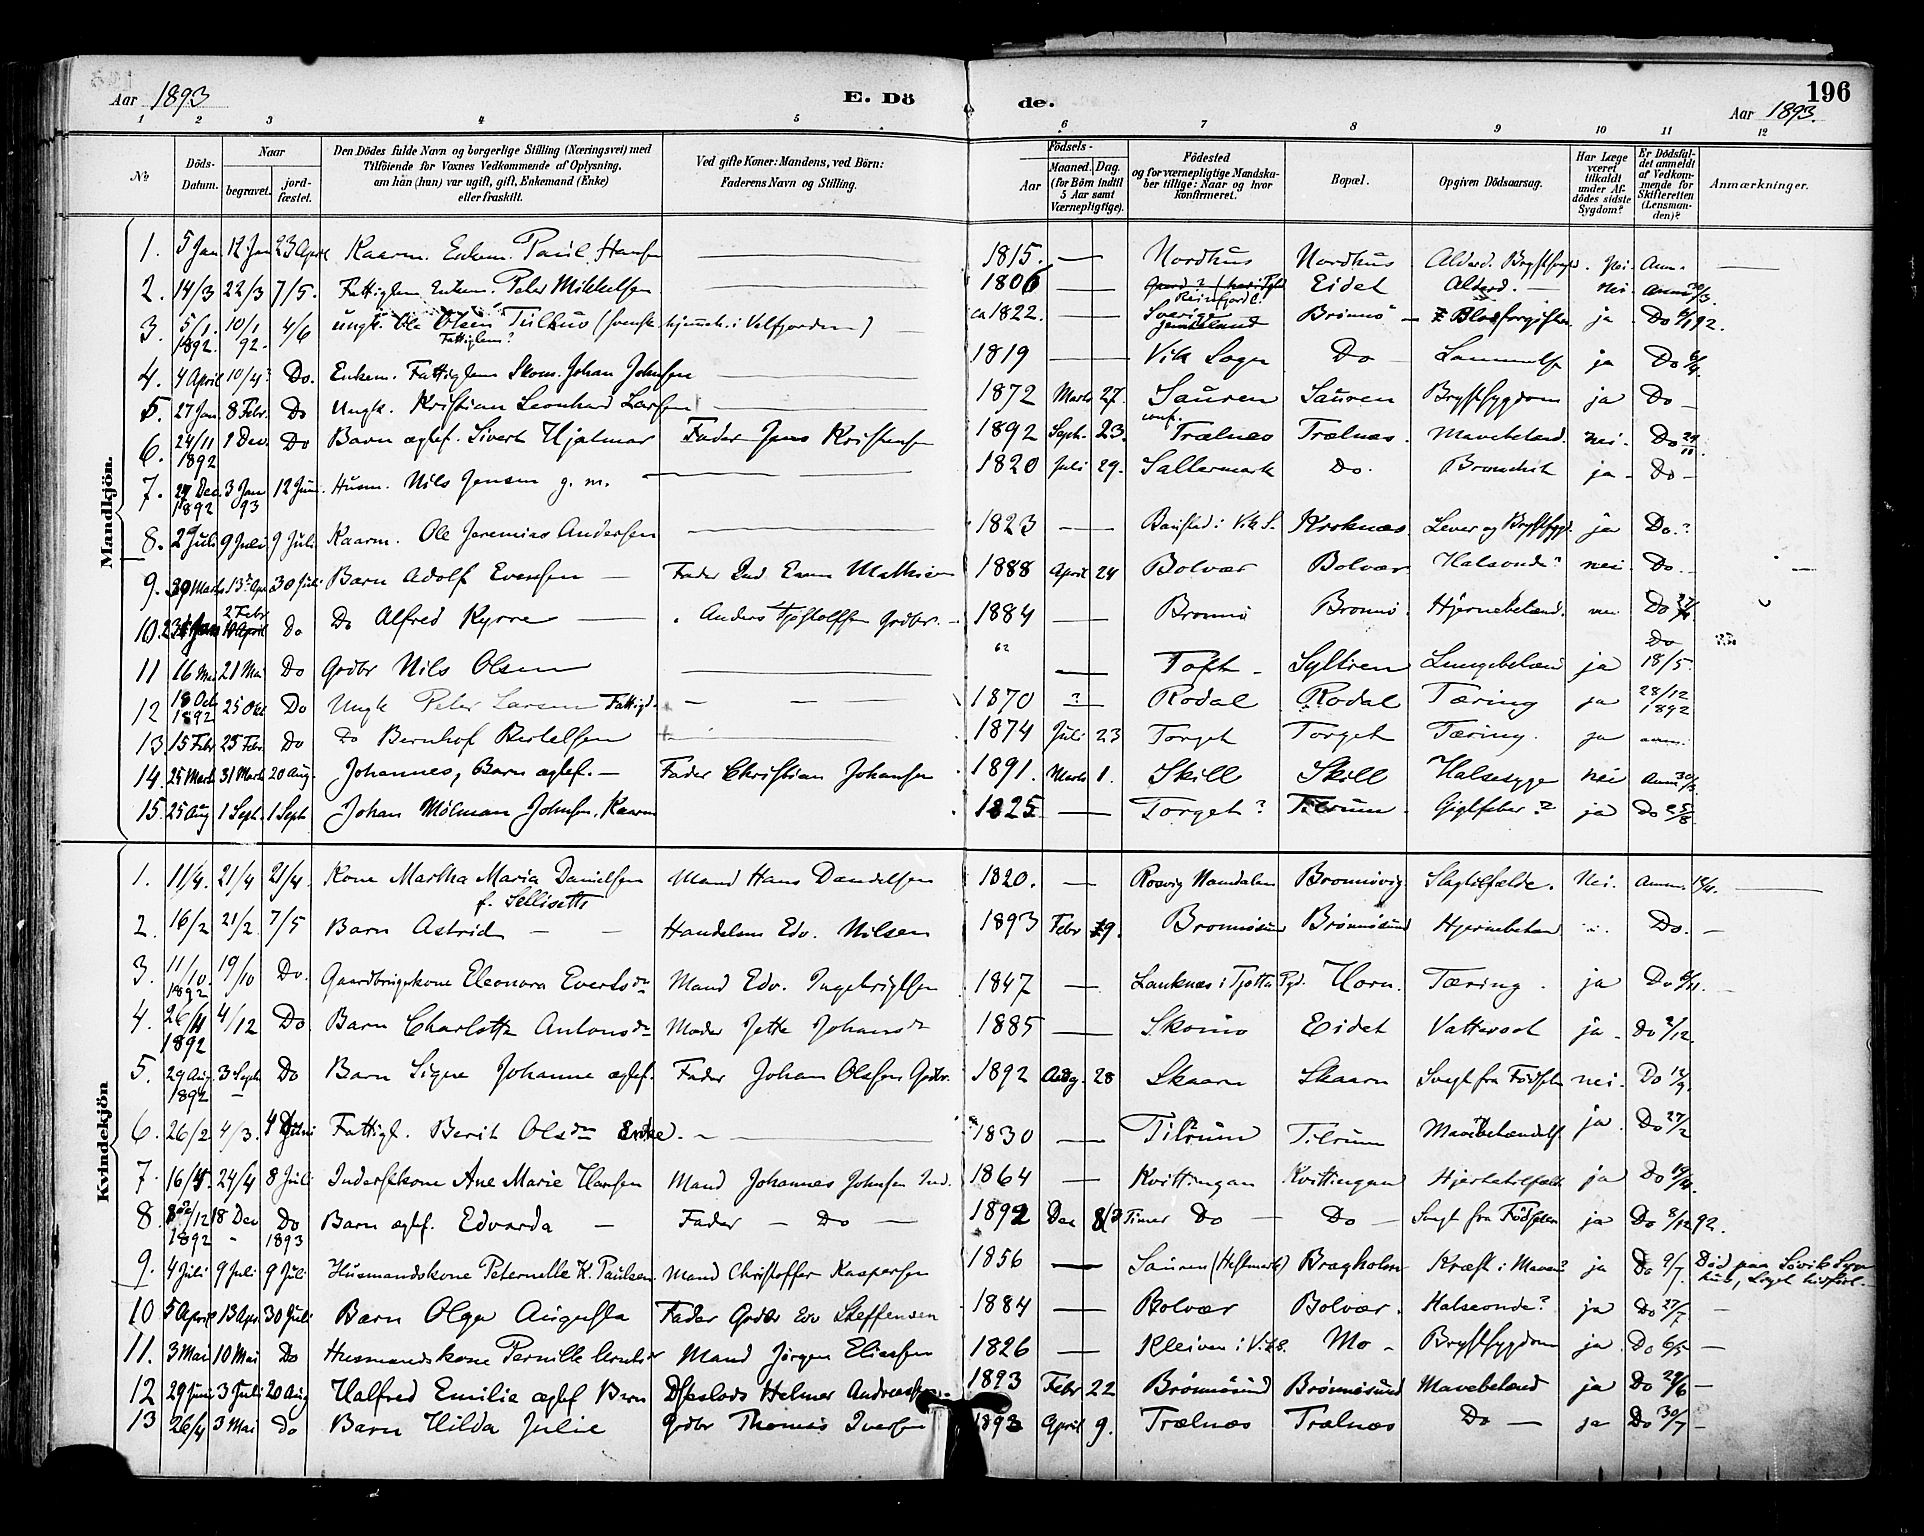 196
Aar 1893
E. Dö de.
Aar 1893.
1 2 3 4 5 6 7 8 9 10 11 12
No
Döds-Datum.
Naar
begravet.
jord-fæstet.
Den Dödes fulde Navn og borgerlige Stilling (Næringsvei) med
Tilföiende for Voxnes Vedkommende af Oplysning,
om hån (hun) var ugift, gift, Enkemand (Enke)
eller fraskilt.
Ved gifte Koner: Mandens, ved Börn:
Faderens Navn og Stilling.
Födsels-
Aar
Maaned. Dag.
(for Börn indtil
5 Aar samt
Værnepligtige).
Födested
og for værnepligtige Mandska-
ber tillige: Naar og hvor
konfirmeret.
Bopæl.
Opgiven Dödsaarsag.
Har Læge
været
tilkaldt
under Af-
dödes sidste
Sygdom?
Er Dödsfal-
det anmeldt
af Vedkom-
mende for
Skifteretten
(Lensman-
den)?
Anmærkninger.
Mandkjön.
1. 5 Jan 12 Jan 23 April Kaarm. Enkem. Paul Hansen 1815. Nordhus Nordhus Alderd. Nei. Anm.
2. 14/3 22/3 7/5. Fattiglem Enkem. Peter Mikkelsen 1806 Eidet Alderd. Nei.
3. 5/1 1892. 10/1 92. 4/6 Ungk. Ole Olsen (svensk i Velfjorden) Fattiglem? ca 1822. Sverige Jemteland Brönnö Blodforgiften ja Do
4. 4 April 10/4? Do. Enkem. Fattiglem Skom. Johan Johnsen 1819 Vik Sogn Do ja Do
5. 27 Jan. 8 Febr. Do Ungk. Kristian Leonhard Larsen 1872 Marts 27. Sauren Sauren Brystsygdom ja Do
6. 24/11 1892 1 Dec. Do Barn ægtef. Sivert Hjalmar Fader Jens Kristensen 1892 Sept. 23. Trælnes Trælnes. nei. Do
7. 27 Dec. 1892 3 Jan 93 12 Juni. Husm. Nils Jensen g. m. 1820 Juli 29. Sallermark Do. Bronchit ja Do
8. 2 Juli 9 Juli 9 Juli Kaarm. Ole Jeremias Andersen 1823 i Vik S. Kroknæs. Lever og Brystsygd. ja Do.?
9. 30 Marts 13 Apr 30 Juli Barn Adolf Evensen Fader Ind. Even Mathisen 1888 April 24 Bolvær Bolvær Halsonde? nei Do.
10. 2 Febr. Do Do Alfred Kyrre Anders Grdbr. 1884 Bronnö Bronnö. Hjernebetænd. Do
11 16 Mai 21 Mai Do Grdbr Nils Olsen Toft Lungebetænd ja Do 18/5.
12 18 Oct 1892 25 Okt Do Ungk Peter Larsen Fattigl. 1870 ? Rodal Rodal Tæring ja 28/12 1892
13. 15 Febr 25 Febr. Do Do Bernhof Bertelsen 1874 Juli 23 Torget Torget Tæring. ja
14. 25 Marts 31 Marts 20 Aug. Johannes, Barn ægtef. Fader Christian Johansen 1891. Marts 1. Skill Skill Halsesyge nei Anm 30/3
15. 25 Aug 1 Sept. 1 Sept Johan Mölman Johnsen. Kaarm 1825 Torget? Tilrum. Gigtfeber? ja Do
Kvindekjön
1. 11/4. 21/4 21/4. Kone Martha Maria Danielsen f. Sellisetts Mand Hans Danielsen 1820. Rosvig Namdalen Bronnövig Slagtilfælde. Nei. Anm.
2. 16/2 21/2. 7/5 Barn Astrid Handelsm Edv. Nilsen 1893 Febr 9. Bronnösund Brönnösund Hjernebetænd Do.
3. 11/10. 1892 19/10 Do. Gaardbrugerkone Eleonora Evertsdr Mand Edv. Ingebrigtsen 1847 i Tjotta Pgd. Horn. Tæring. ja Do
4. 26/11 1892 4/12 Do. Barn Charlotte Antonsdr Moder Jette Johansdr 1885 Skomo Eidet Vattersot ja. Do 2/12.
5. 29 Aug. 1892 3 Sept Do Barn Signe Johanne ægtef. Fader Johan Olsen Grdbr. 1892 Aug. 28 Skaarn Skaarn Svagt fra Födselen nei. Do
6. 26/2 4/3. 4 Juni Fattigl. Berit Olsdn Enke. 1830 Tilrum Tilrum ja. Do 27/2
7. 16/4. 24/4 8 Juli Inderstkone Ane Marie Hansen Mand Johannes Johnsen Ind. 1864 Kvittingan Kvittingan Hjertetilfælde ja Do
8 8/12 1892 18 Dec Do 1893 Barn ægtef. Edvarda Fader Do 1892 Dec Timer Do Do Svagt fra Födselen ja Do 8/12 92.
9. 4 Juli 9 Juli 9 Juli Husmandskone Peternelle K. Paulsen. Mand Christoffer Kaspersen 1856 Sauren (Hestmark) Bragholm Kræft i Maven? ja Do 9/7. Död paa Sövik Syge hus,
10 5 April 13 Apr. 30 Juli Barn Olga Augusta Fader Grdbr Edv Steffensen 1884 Bolvær Bolvær. Halseonde? ja Do 27/7
11. 3 Mai 10 Mai Do Husmandskone Pernille Mand Jörgen Eliassen 1826 Kleiven i V.S. Mo Brystsygdom ja. Do 6/5
12 29 Juni 3 Juli 20 Aug Halfred Emilie ægtef Barn Helmer 1893 Febr 22 Brönnösund Brönnösund Mavebetænd ja Do 29/6
13 26/4 3 Mai Do Barn Hilda Julie Grdbr Thomas Iversen 1893 April 9. Trælnæs Trælnæs Do ja Do 30/7